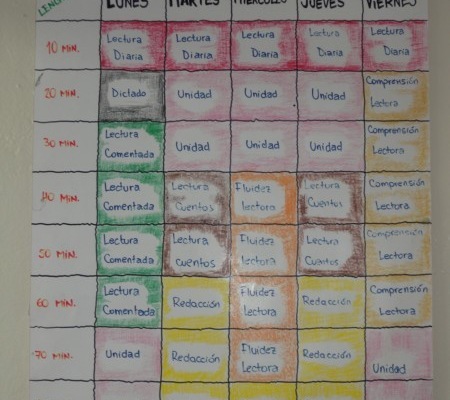 LENG
LUNES MARTES MIÉRCOLES JUEVES VIERNES
10 MIN. Lectura Diaria Lectura Diaria Lectura Diaria Lectura Diaria Lectura Diaria
20 MIN. Dictado Unidad Unidad Unidad Comprensión Lectora
30 MIN. Lectura Comentada Unidad Unidad Unidad Comprensión Lectora
40 MIN. Lectura Comentada Lectura Cuentos Fluidez Lectora Lectura Cuentos Comprensión Lectora
50 MIN. Lectura Comentada Lectura Cuentos Fluidez Lectora Lectura Cuentos Comprensión Lectora
60 MIN. Lectura Comentada Redacción Fluidez Lectora Redacción Comprensión Lectora
70 MIN. Unidad Redacción Fluidez Lectora Redacción Unidad